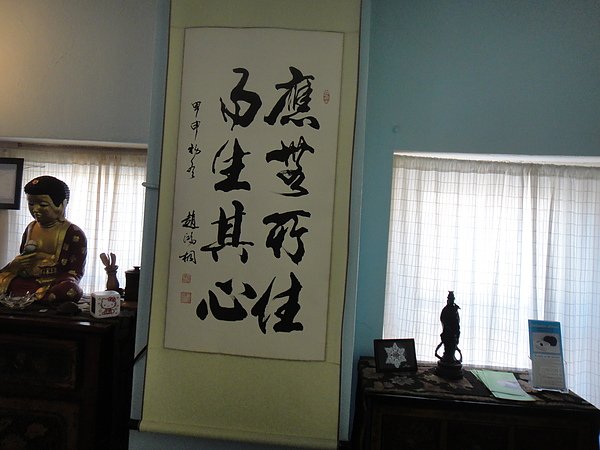 應無所住
而生其心
甲申
趙鴻桐